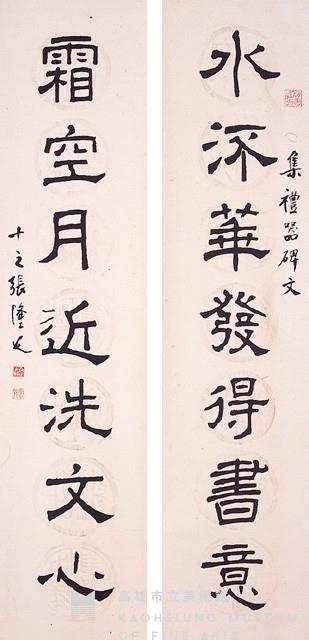 集禮器碑文
水㳅華發得書意
霜空月近洗文心
十之張隆延
高雄市立美術館
KAOHSIUNG MUSEUM
OF FINE ARTS